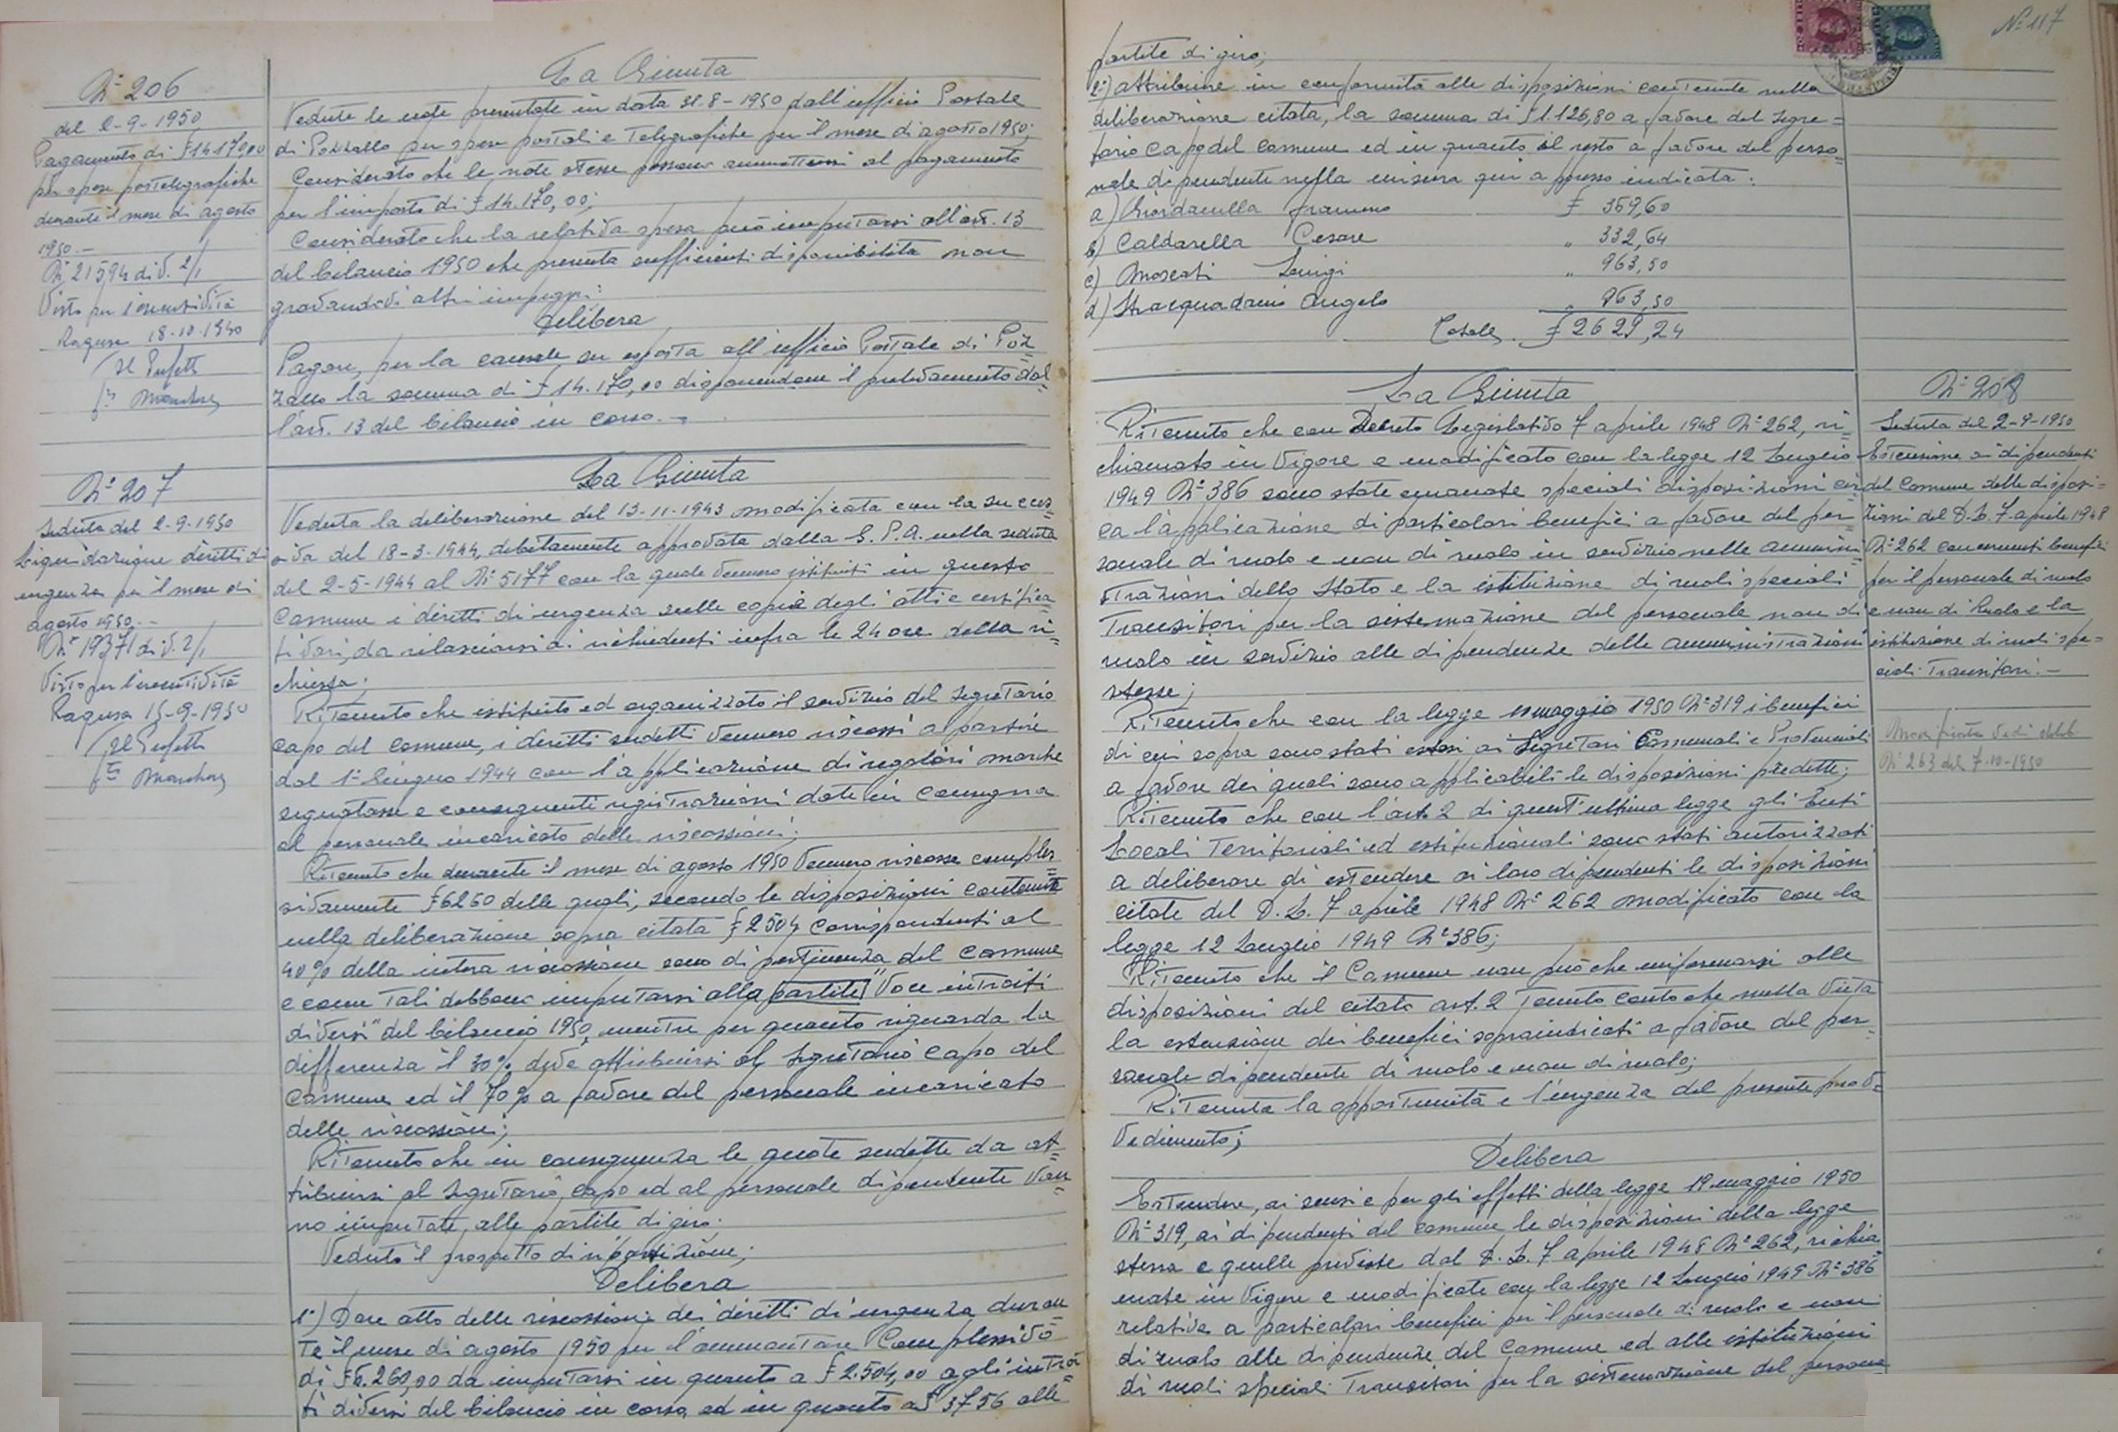 N° 206
del 2-9-1950
Pagamento di £ 14170,00
per spese postelegrafiche
durante il mese di agosto
1950.-
N° 21594 di d. 2/1
Visto per l'esecutività
Ragusa 18-10-1950
Il Prefetto
La Giunta
Vedute le note presentate in data 31-8-1950 dall'ufficio Postale
di Pozzallo per spese postali e Telegrafiche per il mese di agosto 1950;
Considerato che le note stesse possono ammettersi al pagamento
per l'importo di £ 14.170,00;
Considerato che la relativa spesa può imputarsi all'art. 13
del bilancio 1950 che presenta sufficienti disponibilità non
gravandovi altri impegni;
Delibera
Pagare, per la causale su esposta all'ufficio Postale di Poz=
zallo la somma di £ 14.170,00 disponendone il prelevamento dal=
l'art. 13 del bilancio in corso.-
N° 207
Seduta del 2-9-1950
Liquidazione diritti di
urgenza per il mese di
agosto 1950.-
N° 19371 di d. 2/1
Visto per l'esecutività
Ragusa 15-9-1950
Il Prefetto
La Giunta
Veduta la deliberazione del 13-11-1943 modificata con la succes=
siva del 18-3-1944, debitamente approvata dalla G.P.A. nella seduta
del 2-5-1944 al N° 5177 con la quale vennero istituiti in questo
Comune i diritti di urgenza sulle copie degli atti e certifica=
ti vari, da rilasciarsi ai richiedenti infra le 24 ore della ri=
chiesta;
Ritenuto che istituito ed organizzato il servizio del Segretario
capo del Comune, i diritti sudetti vennero riscossi a partire
dal 1° Giugno 1944 con l'applicazione di regolari marche
segnatasse e conseguenti registrazioni date in consegna
al personale incaricato delle riscossioni;
Ritenuto che durante il mese di agosto 1950 vennero riscosse comples=
sivamente £ 6260 delle quali, secondo le disposizioni contenute
nella deliberazione sopra citata £ 2504 corrispondenti al
40% della intera riscossione sono di pertinenza del Comune
e come tali debbono imputarsi alla partita "Voce introiti
diversi" del bilancio 1950, mentre per quanto riguarda la
differenza il 30% deve attribuirsi al Segretario Capo del
Comune ed il 70% a favore del personale incaricato
delle riscossioni;
Ritenuto che in conseguenza le quote sudette da at=
tribuirsi al Segretario, capo ed al personale dipendente van=
no imputate, alle partite di giro;
Veduto il prospetto di ripartizione;
Delibera
1°) Dare atto delle riscossioni dei diritti di urgenza duran
te il mese di agosto 1950 per l'ammontare Complessivo
di £ 6.260,00 da imputarsi in quanto a £ 2.504,00 agli introi=
ti diversi del bilancio in corso, ed in quanto a £ 3756 alle
N° 117
partite di giro;
2°) attribuire in conformità alle disposizioni contenute nella
deliberazione citata, la somma di £ 1.126,80 a favore del Segre=
tario Capo del Comune ed in quanto il resto a favore del perso=
nale dipendente nella misura qui appresso indicata:
a) Giordanella £ 369,60
b) Caldarella Cesare " 332,64
c) Moscati Luigi " 963,50
d) Stracquadanio Angelo " 963,50
Totale £ 2629,24
La Giunta
Ritenuto che con Decreto Legislativo 7 aprile 1948 N° 262, ri=
chiamato in vigore e modificato con la legge 12 Luglio
1949 N° 386 sono state emanate speciali disposizioni cir
ca l'applicazione di particolari benefici a favore del per=
sonale di ruolo e non di ruolo in servizio nelle ammini=
strazioni dello Stato e la istituzione di ruoli speciali
Transitori per la sistemazione del personale non di
ruolo in servizio alle dipendenze delle amministrazioni
stesse;
Ritenuto che con la legge 19 maggio 1950 N° 319 i benefici
di cui sopra sono stati estesi ai Segretari Comunali e Provinciali
a favore dei quali sono applicabili le disposizioni predette;
Ritenuto che con l'art. 2 di quest'ultima legge gli Enti
Locali Territoriali ed istituzionali sono stati autorizzati
a deliberare di estendere ai loro dipendenti le disposizioni
citate del D.L. 7 aprile 1948 N° 262 modificato con la
legge 12 Luglio 1949 N° 386;
Ritenuto che il Comune non può che uniformarsi alle
disposizioni del citato art. 2 tenuto conto che nulla vieta
la estensione dei benefici sopraindicati a favore del per=
sonale dipendente di ruolo e non di ruolo;
Ritenuta la opportunità e l'urgenza del presente prov=
vedimento;
Delibera
Estendere, ai sensi e per gli effetti della legge 19 maggio 1950
N° 319, ai dipendenti del Comune le disposizioni della legge
stessa e quelle previste dal D.L. 7 aprile 1948 N° 262, richia
mate in vigore e modificate con la legge 12 Luglio 1949 N° 386
relative a particolari benefici per il personale di ruolo e non
di ruolo alle dipendenze del Comune ed alle istituzioni
di ruoli speciali Transitori per la sistemazione del persona
N° 208
Seduta del 2-9-1950
Estensione ai dipendenti
del Comune delle disposi=
zioni del D.L. 7 aprile 1948
N° 262 concernenti benefici
per il personale di ruolo
e non di ruolo e la
istituzione di ruoli spe=
ciali Transitori.-
Modificata vedi delib.
N° 263 del 7-10-1950